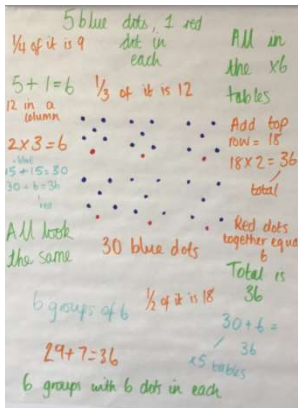 5 blue dots, 1 red
dot in
each
1/4 of it is 9
All in
the x6
tables
5+1=6
1/3 of it is 12
12 in a
column
2x3=6
blue
15+15=30
30+6=36
red
Add top
row = 18
18x2=36
total
All look
the same
30 blue dots
Red dots
together equal
6
Total is
36
6 groups of 6
1/2 of it is 18
30+6=
36
x5 tables
29+7=36
6 groups with 6 dots in each